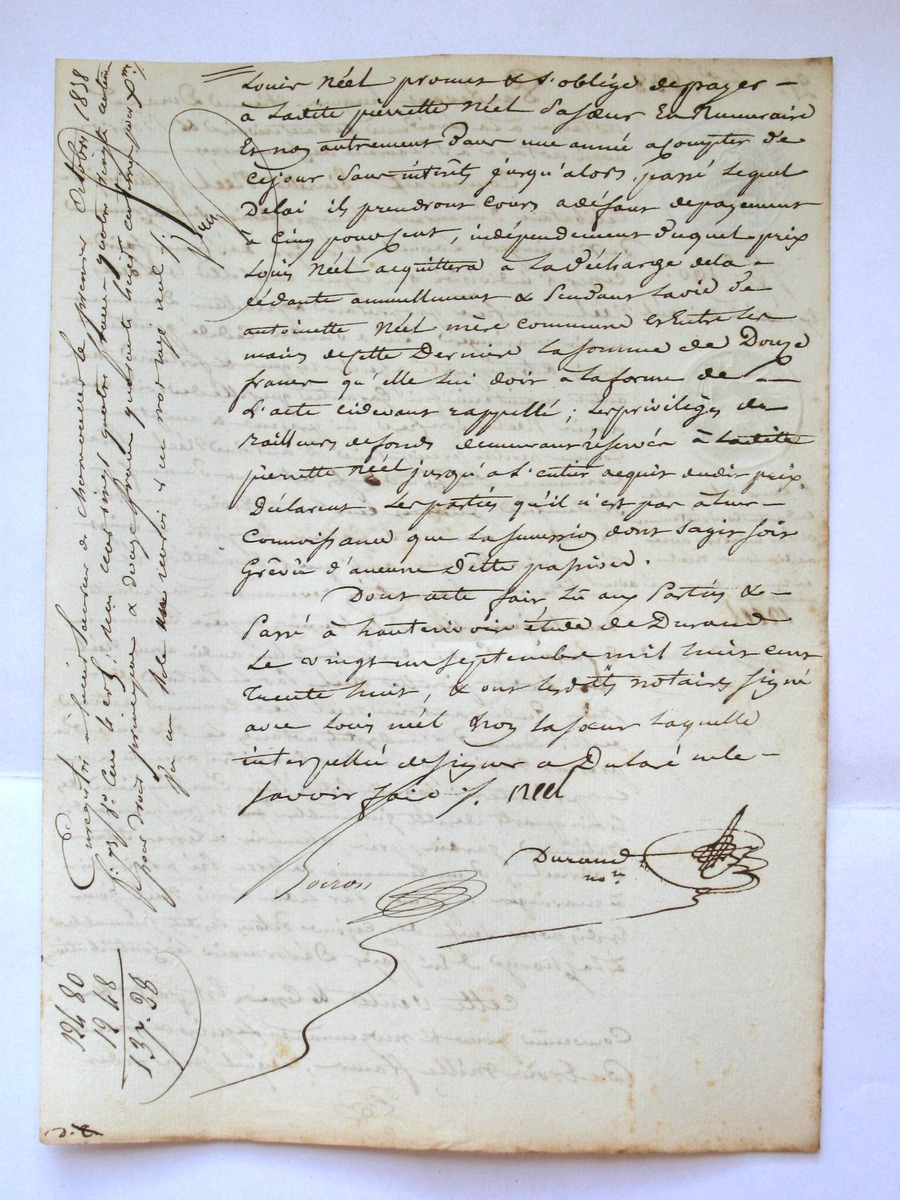 Louis Néel promet & s'oblige de payer —
à Ladite pierrette Néel Sa sœur En Numeraire
Et non autrement Dans une année a compter de
ce jour Sans intérêts jusqu'alors, passé Lequel
Délai ils prendront cours a défaut de payement
à Cinq pour cent, indépendement Duquel prix
Louis Néel acquittera à La Décharge de la —
cédante annuellement & Pendant La vie de
antoinette Néel mère commune Et Entre les
mains de cette Dernière La Somme de Douze
francs qu'elle lui doit à la forme de —
L'acte cidevant rappellé; Les privilèges de
railleurs de fonds demeurant réservés à Ladite
pierrette Néel jusqu'à L'entier acquit dudit prix
Déclarent Les parties qu'il n'est pas à Leur —
Connoissance que La Succession dont s'agit soit
Grêvée d'aucune Dette passive.
Dont acte fait, Lu aux Parties & —
Passé à hauterivoire étude de Durand
Le vingt un Septembre mil huit cent
Trente huit, & ont Lesdits notaires signé
avec Louis néel & non La Sœur Laquelle
interpellée de signer a Déclaré ne le —
Savoir faire ./. néel
Durand
nore
Boiron
Enregistré à Saint Laurent de chamousset le premier Octobre 1838
fo 73 Ro Cases 4 et Reçu cent vingt quatre francs quatre vingts centimes
pour droit principal & douze francs quarante huit centimes pour Xme ./.
un renvoi & un mot rayé nul ./.
124 80
12 48
137. 28